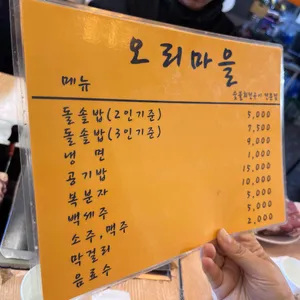 오리마을
메뉴
돌솥밥(2인기준) 5,000
돌솥밥(3인기준) 7,500
냉 면 9,000
공기밥 1,000
복분자 15,000
백세주 10,000
소주,맥주 5,000
막걸리 5,000
음료수 2,000